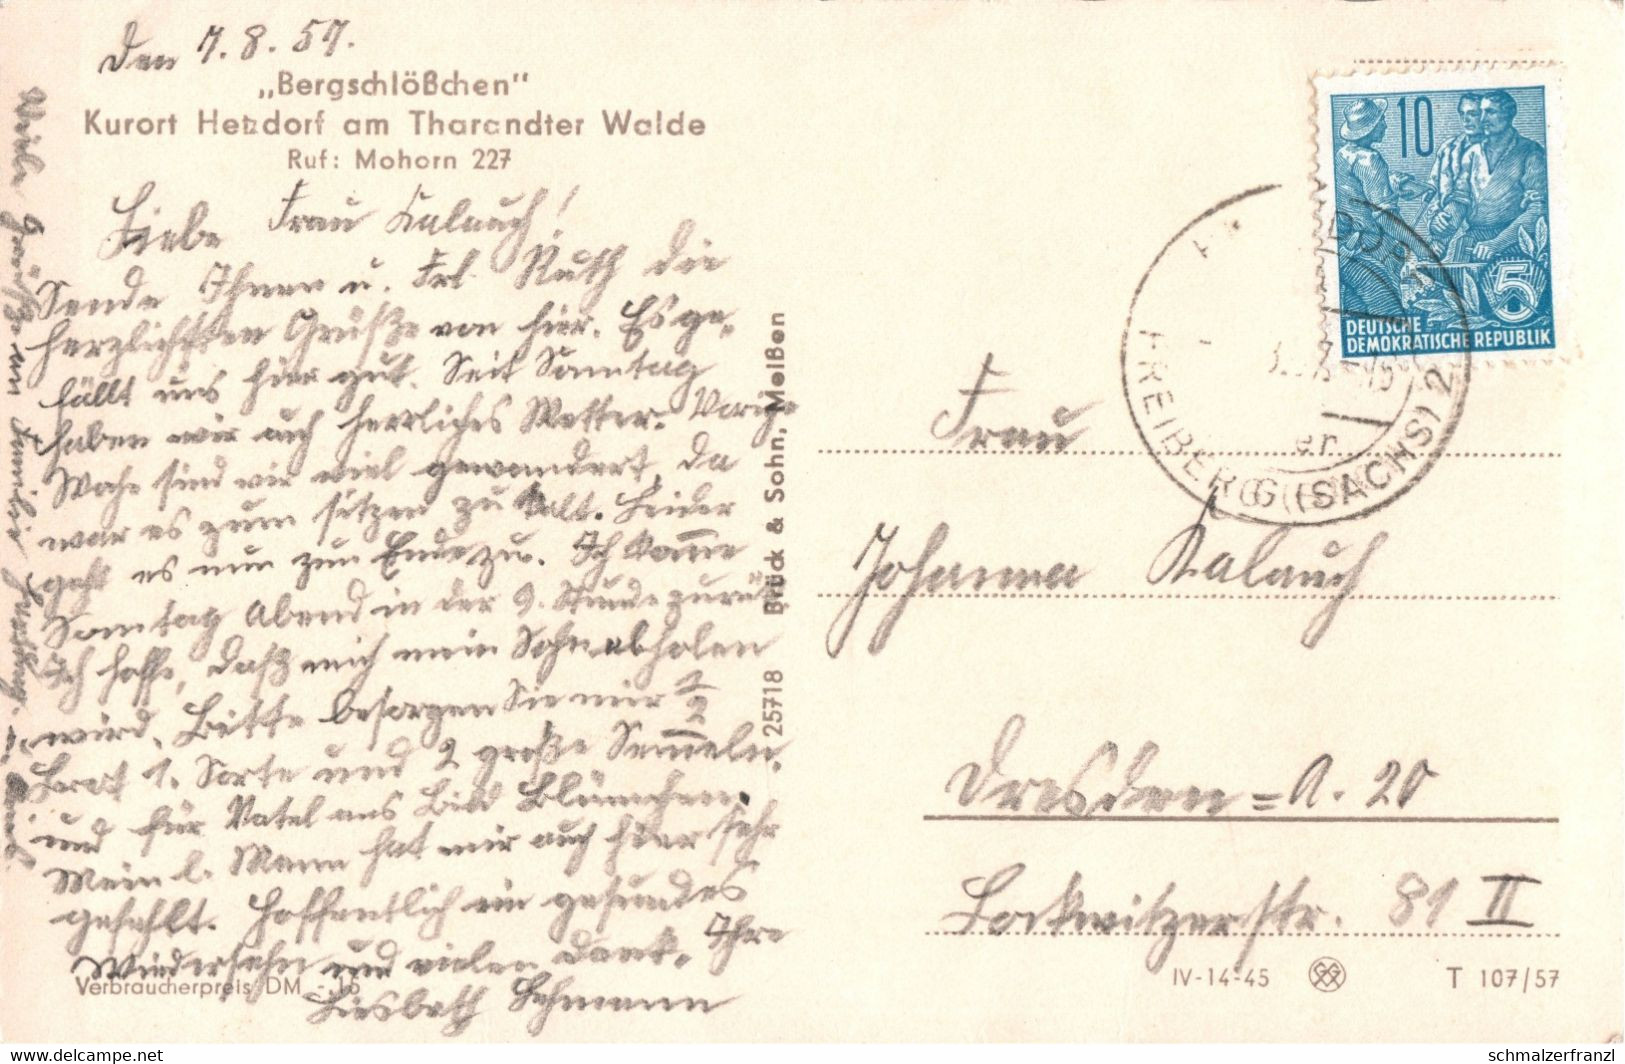 Den 7.8.57.
„Bergschlößchen"
Kurort Hetzdorf am Tharandter Walde
Ruf: Mohorn 227
Liebe Frau Kalauch!
Sende Ihnen u. Frl Ruth die
herzlichsten Grüße von hier. Es ge-
fällt uns hier gut. Seit Sonntag
haben wir auch herrliches Wetter. Vorige
Woche sind wir viel gewandert, da
war es zum sitzen zu kalt. Leider
geht es nun zum Ende zu. Ich komme
Sonntag Abend in der 9. Stunde zurück.
Ich hoffe, daß mich mein Sohn abholen
wird. Bitte besorgen Sie mir 1/2
Brot 1. Sorte und 2 große Semmeln.
und für Vatel ans Bild Blümchen.
Mein l. Mann hat mir auch hier sehr
gefehlt. Hoffentlich ein gesundes
Wiedersehn und vielen Dank. Ihre
Liesbeth Lehmann
Viele Grüße an Familie
Verbraucherpreis DM -.15
25718 Brück & Sohn, Meißen
10
5
DEUTSCHE
DEMOKRATISCHE REPUBLIK
FREIBERG (SACHS) 2
Frau
Johanna Kalauch
Dresden = A. 20
Lockwitzerstr. 81 II
IV-14-45
T 107/57
https://www.delcampe.net
schmalzerfranzl